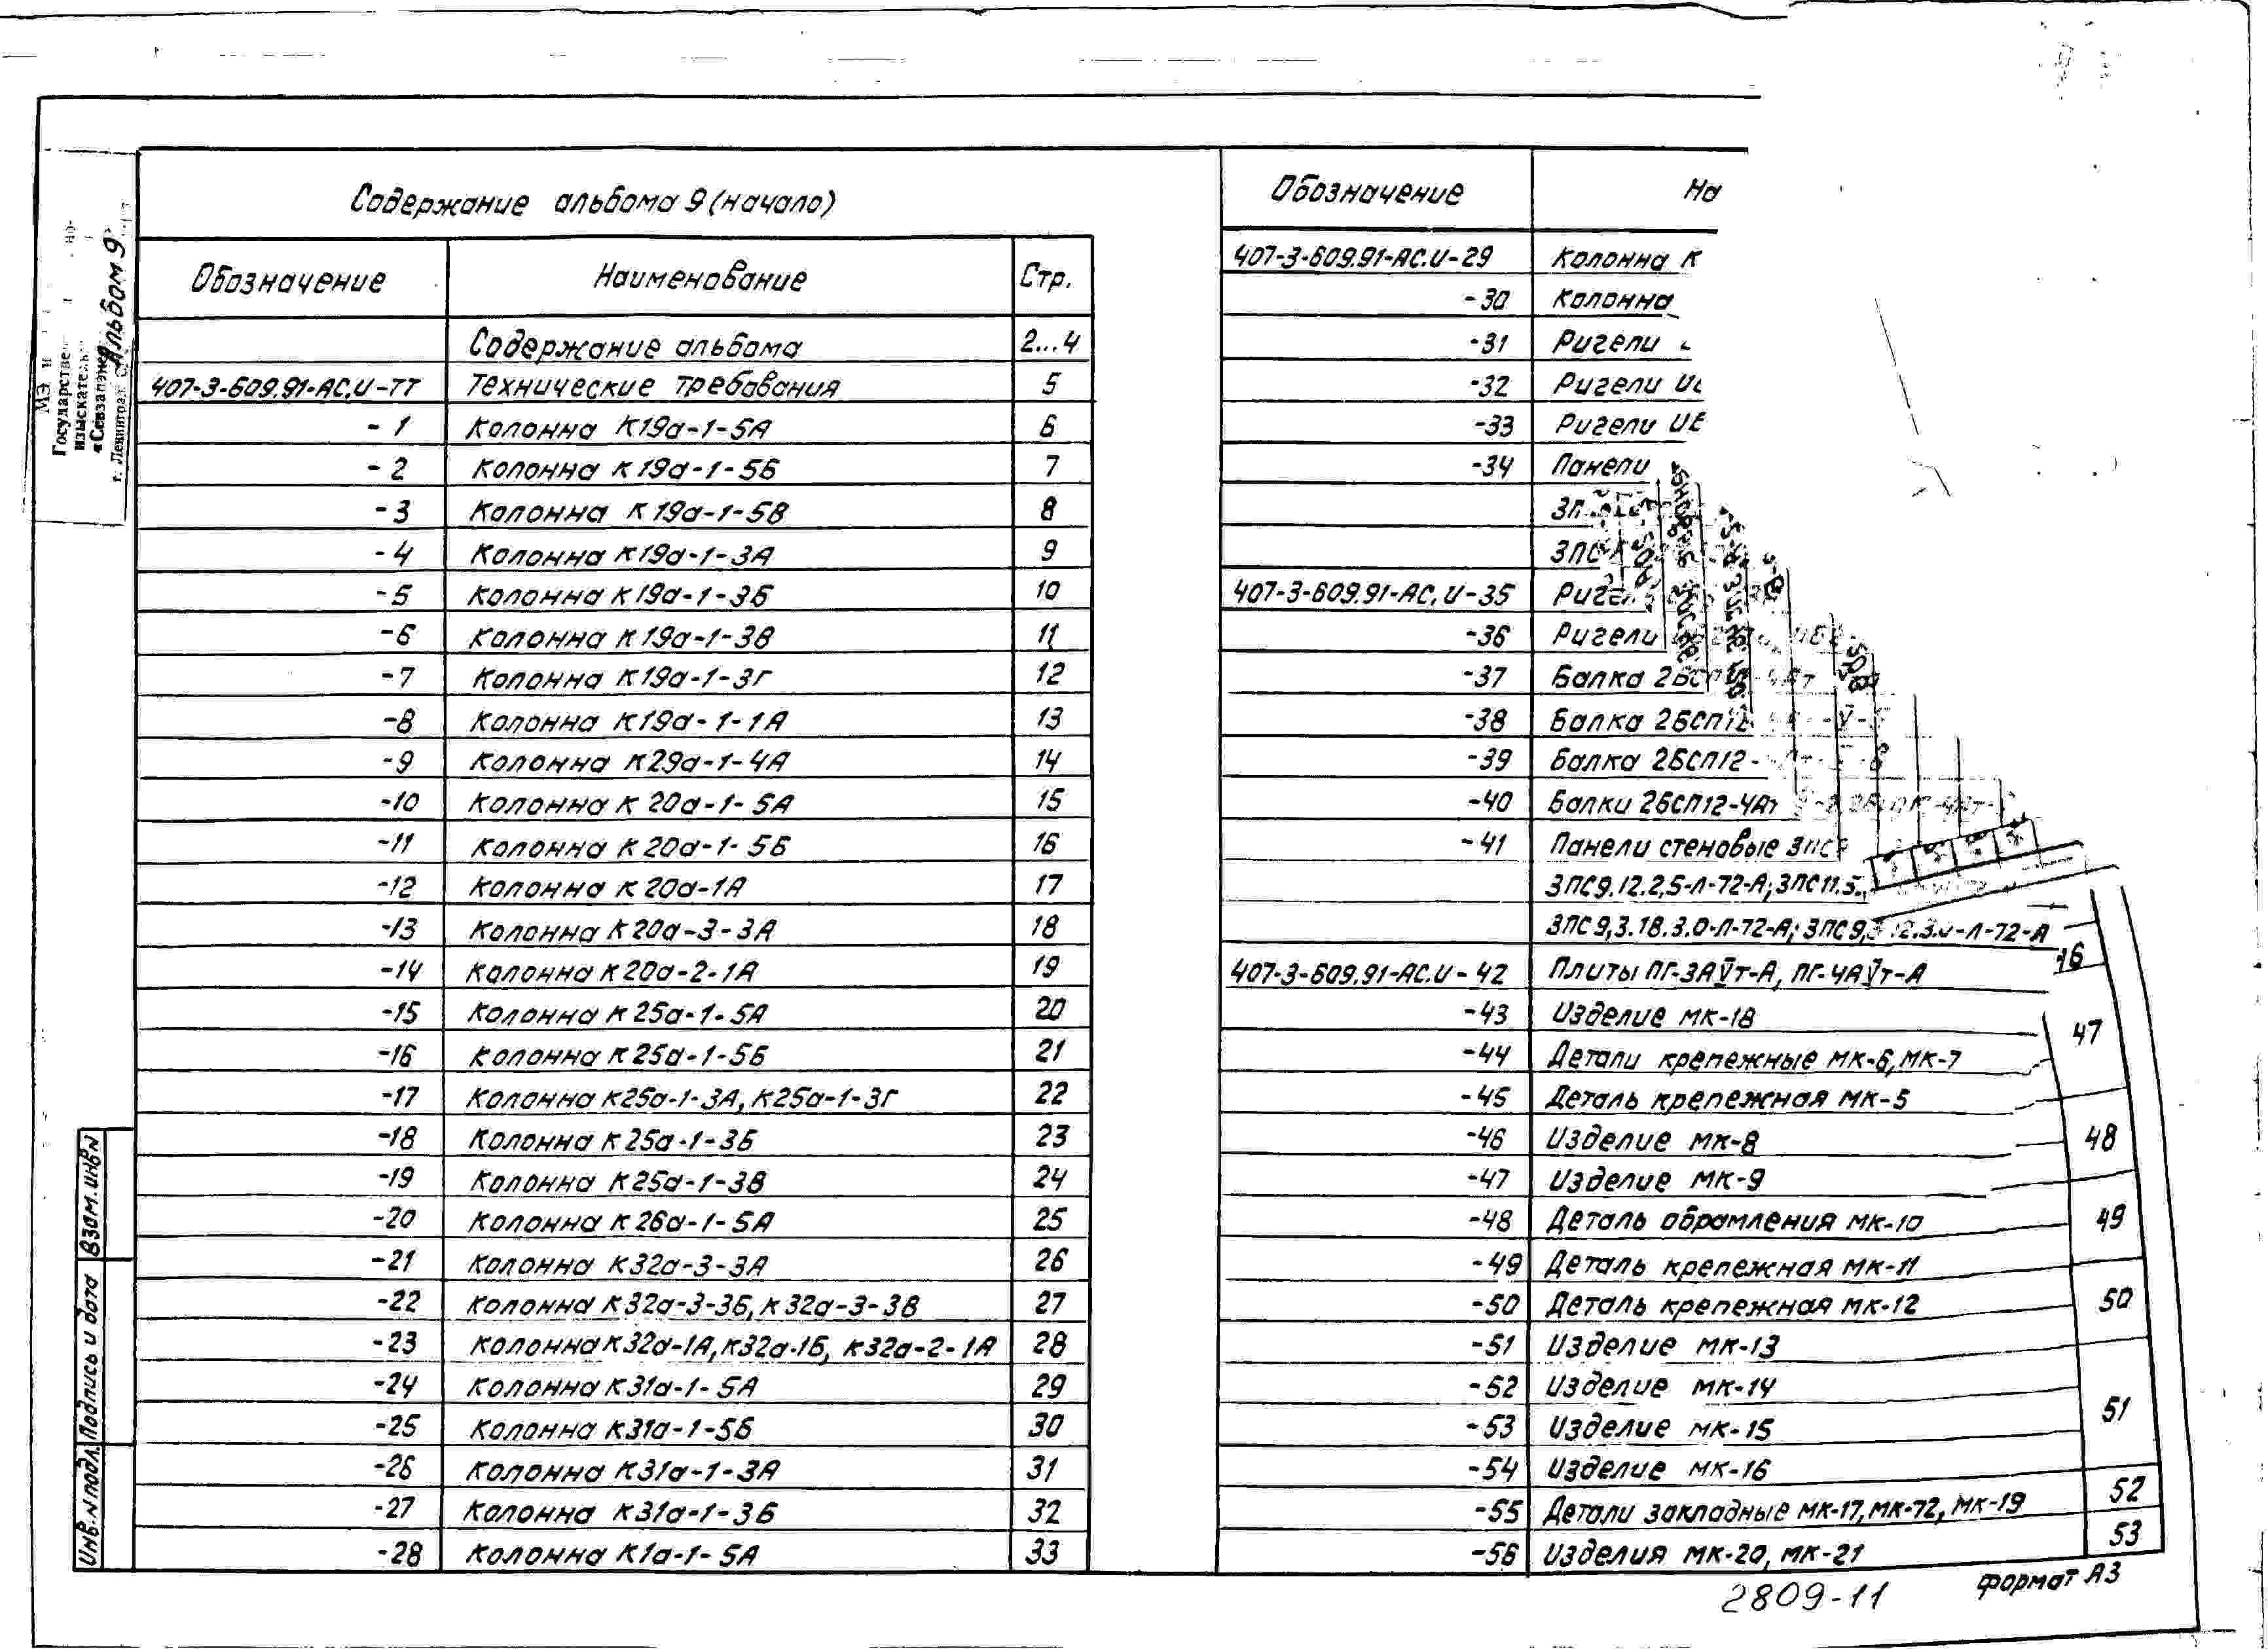 Содержание альбома 9 (начало)
Обозначение Наименование Стр.
Содержание альбома 2...4
407-3-609.91-АС.И-ТТ Технические требования 5
-1 Колонна К19а-1-5А 6
-2 Колонна К19а-1-5Б 7
-3 Колонна К19а-1-5В 8
-4 Колонна К19а-1-3А 9
-5 Колонна К19а-1-3Б 10
-6 Колонна К19а-1-3В 11
-7 Колонна К19а-1-3Г 12
-8 Колонна К19а-1-1А 13
-9 Колонна К29а-1-4А 14
-10 Колонна К20а-1-5А 15
-11 Колонна К20а-1-5Б 16
-12 Колонна К20а-1А 17
-13 Колонна К20а-3-3А 18
-14 Колонна К20а-2-1А 19
-15 Колонна К25а-1-5А 20
-16 Колонна К25а-1-5Б 21
-17 Колонна К25а-1-3А, К25а-1-3Г 22
-18 Колонна К25а-1-3Б 23
-19 Колонна К25а-1-3В 24
-20 Колонна К26а-1-5А 25
-21 Колонна К32а-3-3А 26
-22 Колонна К32а-3-3Б, К32а-3-3В 27
-23 Колонна К32а-1А, К32а-1Б, К32а-2-1А 28
-24 Колонна К31а-1-5А 29
-25 Колонна К31а-1-5Б 30
-26 Колонна К31а-1-3А 31
-27 Колонна К31а-1-3Б 32
-28 Колонна К1а-1-5А 33
Обозначение На
407-3-609.91-АС.И-29 Колонна К
-30 Колонна
-31 Ригели
-32 Ригели
-33 Ригели
-34 Панели
407-3-609.91-АС.И-35
-36 Ригели
-37 Балка
-38 Балка 2БСП12
-39 Балка 2БСП12-
-40 Балки 2БСП12-4Ат
-41 Панели стеновые
3ПС9.12.2,5-Л-72-А; 3ПС11.5.
3ПС9,3.18.3.0-Л-72-А;
407-3-609.91-АС.И-42 Плиты ПГ-3АⅤт-А, ПГ-4АⅤт-А
-43 Изделие МК-18 47
-44 Детали крепежные МК-6, МК-7
-45 Деталь крепежная МК-5
-46 Изделие МК-8 48
-47 Изделие МК-9
-48 Деталь обрамления МК-10 49
-49 Деталь крепежная МК-11
-50 Деталь крепежная МК-12 50
-51 Изделие МК-13
-52 Изделие МК-14
-53 Изделие МК-15 51
-54 Изделие МК-16
-55 Детали закладные МК-17, МК-72, МК-19 52
-56 Изделия МК-20, МК-21 53
2809-11
формат А3
Альбом 9
г. Ленинград
Взам. инв№
Подпись и дата
Инв. №подл.